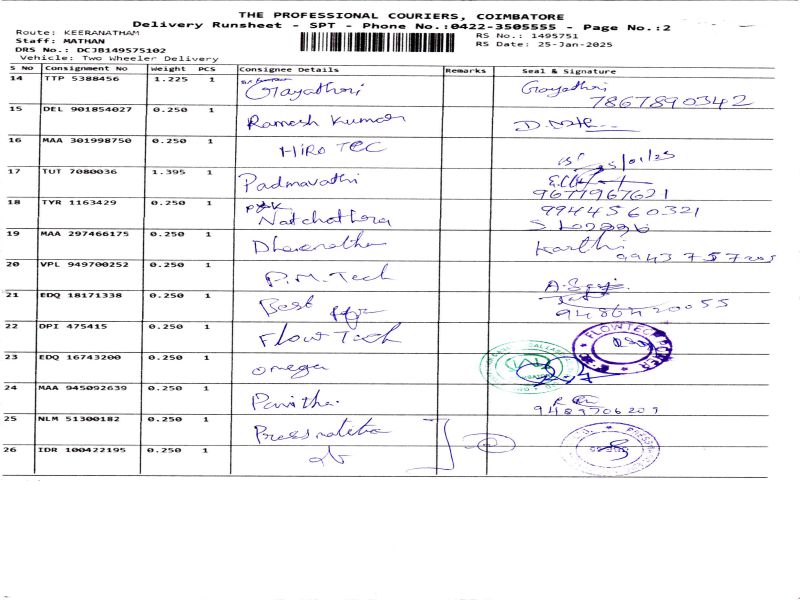 THE PROFESSIONAL COURIERS, COIMBATORE
Delivery Runsheet - SPT - Phone No.:0422-3505555 - Page No.:2
Route: KEERANATHAM
Staff: MATHAN
DRS No.: DCJB149575102
Vehicle: Two Wheeler Delivery
RS No.: 1495751
RS Date: 25-Jan-2025
S No Consignment No Weight PCS Consignee Details Remarks Seal & Signature
14 TTP 5388456 1.225 1 Gayathri Gayathri
7867890342
15 DEL 901854027 0.250 1 Ramesh Kumar
16 MAA 301998750 0.250 1 Hiro TEC
17 TUT 7080036 1.395 1 Padmavathi
9677967621
18 TYR 1163429 0.250 1 Natchathra 9944560321
19 MAA 297466175 0.250 1 Karthi
20 VPL 949700252 0.250 1 P.M. Tech
21 EDQ 18171338 0.250 1 Best
22 DPI 475415 0.250 1 Flow Tech FLOWTECH
23 EDQ 16743200 0.250 1 omega
24 MAA 945092639 0.250 1 Pavithra
25 NLM 51300182 0.250 1
26 IDR 100422195 0.250 1